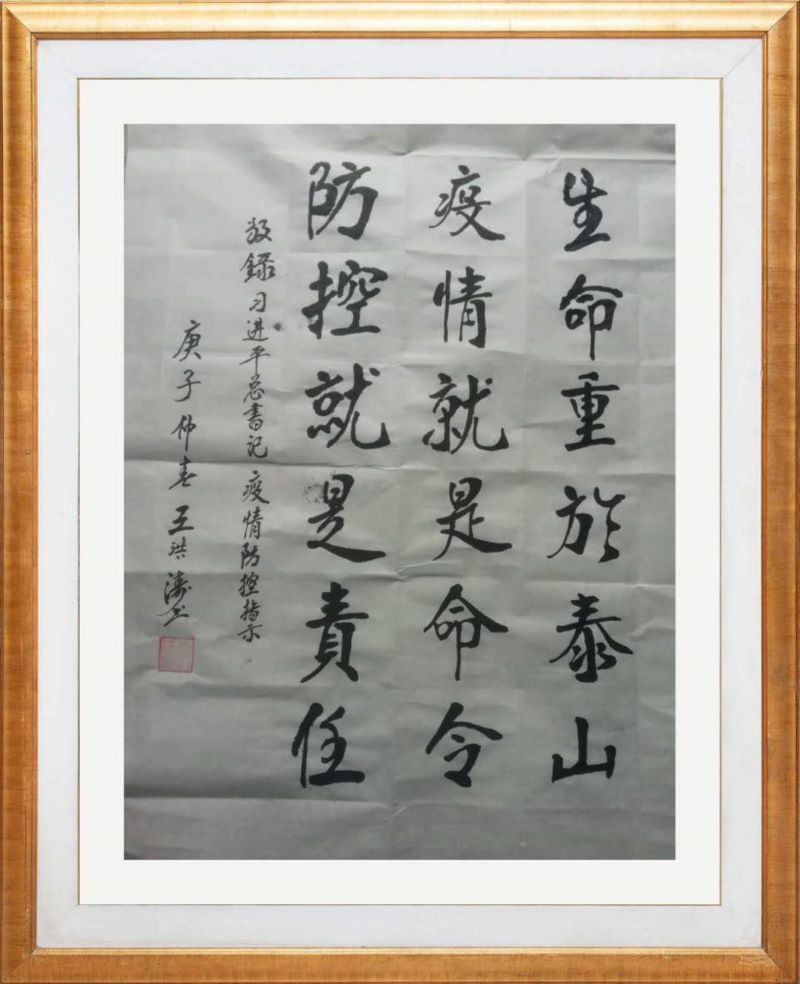 生命重於泰山
疫情就是命令
防控就是責任
敬錄习进平总書记疫情防控指示
庚子仲春王洪涛书